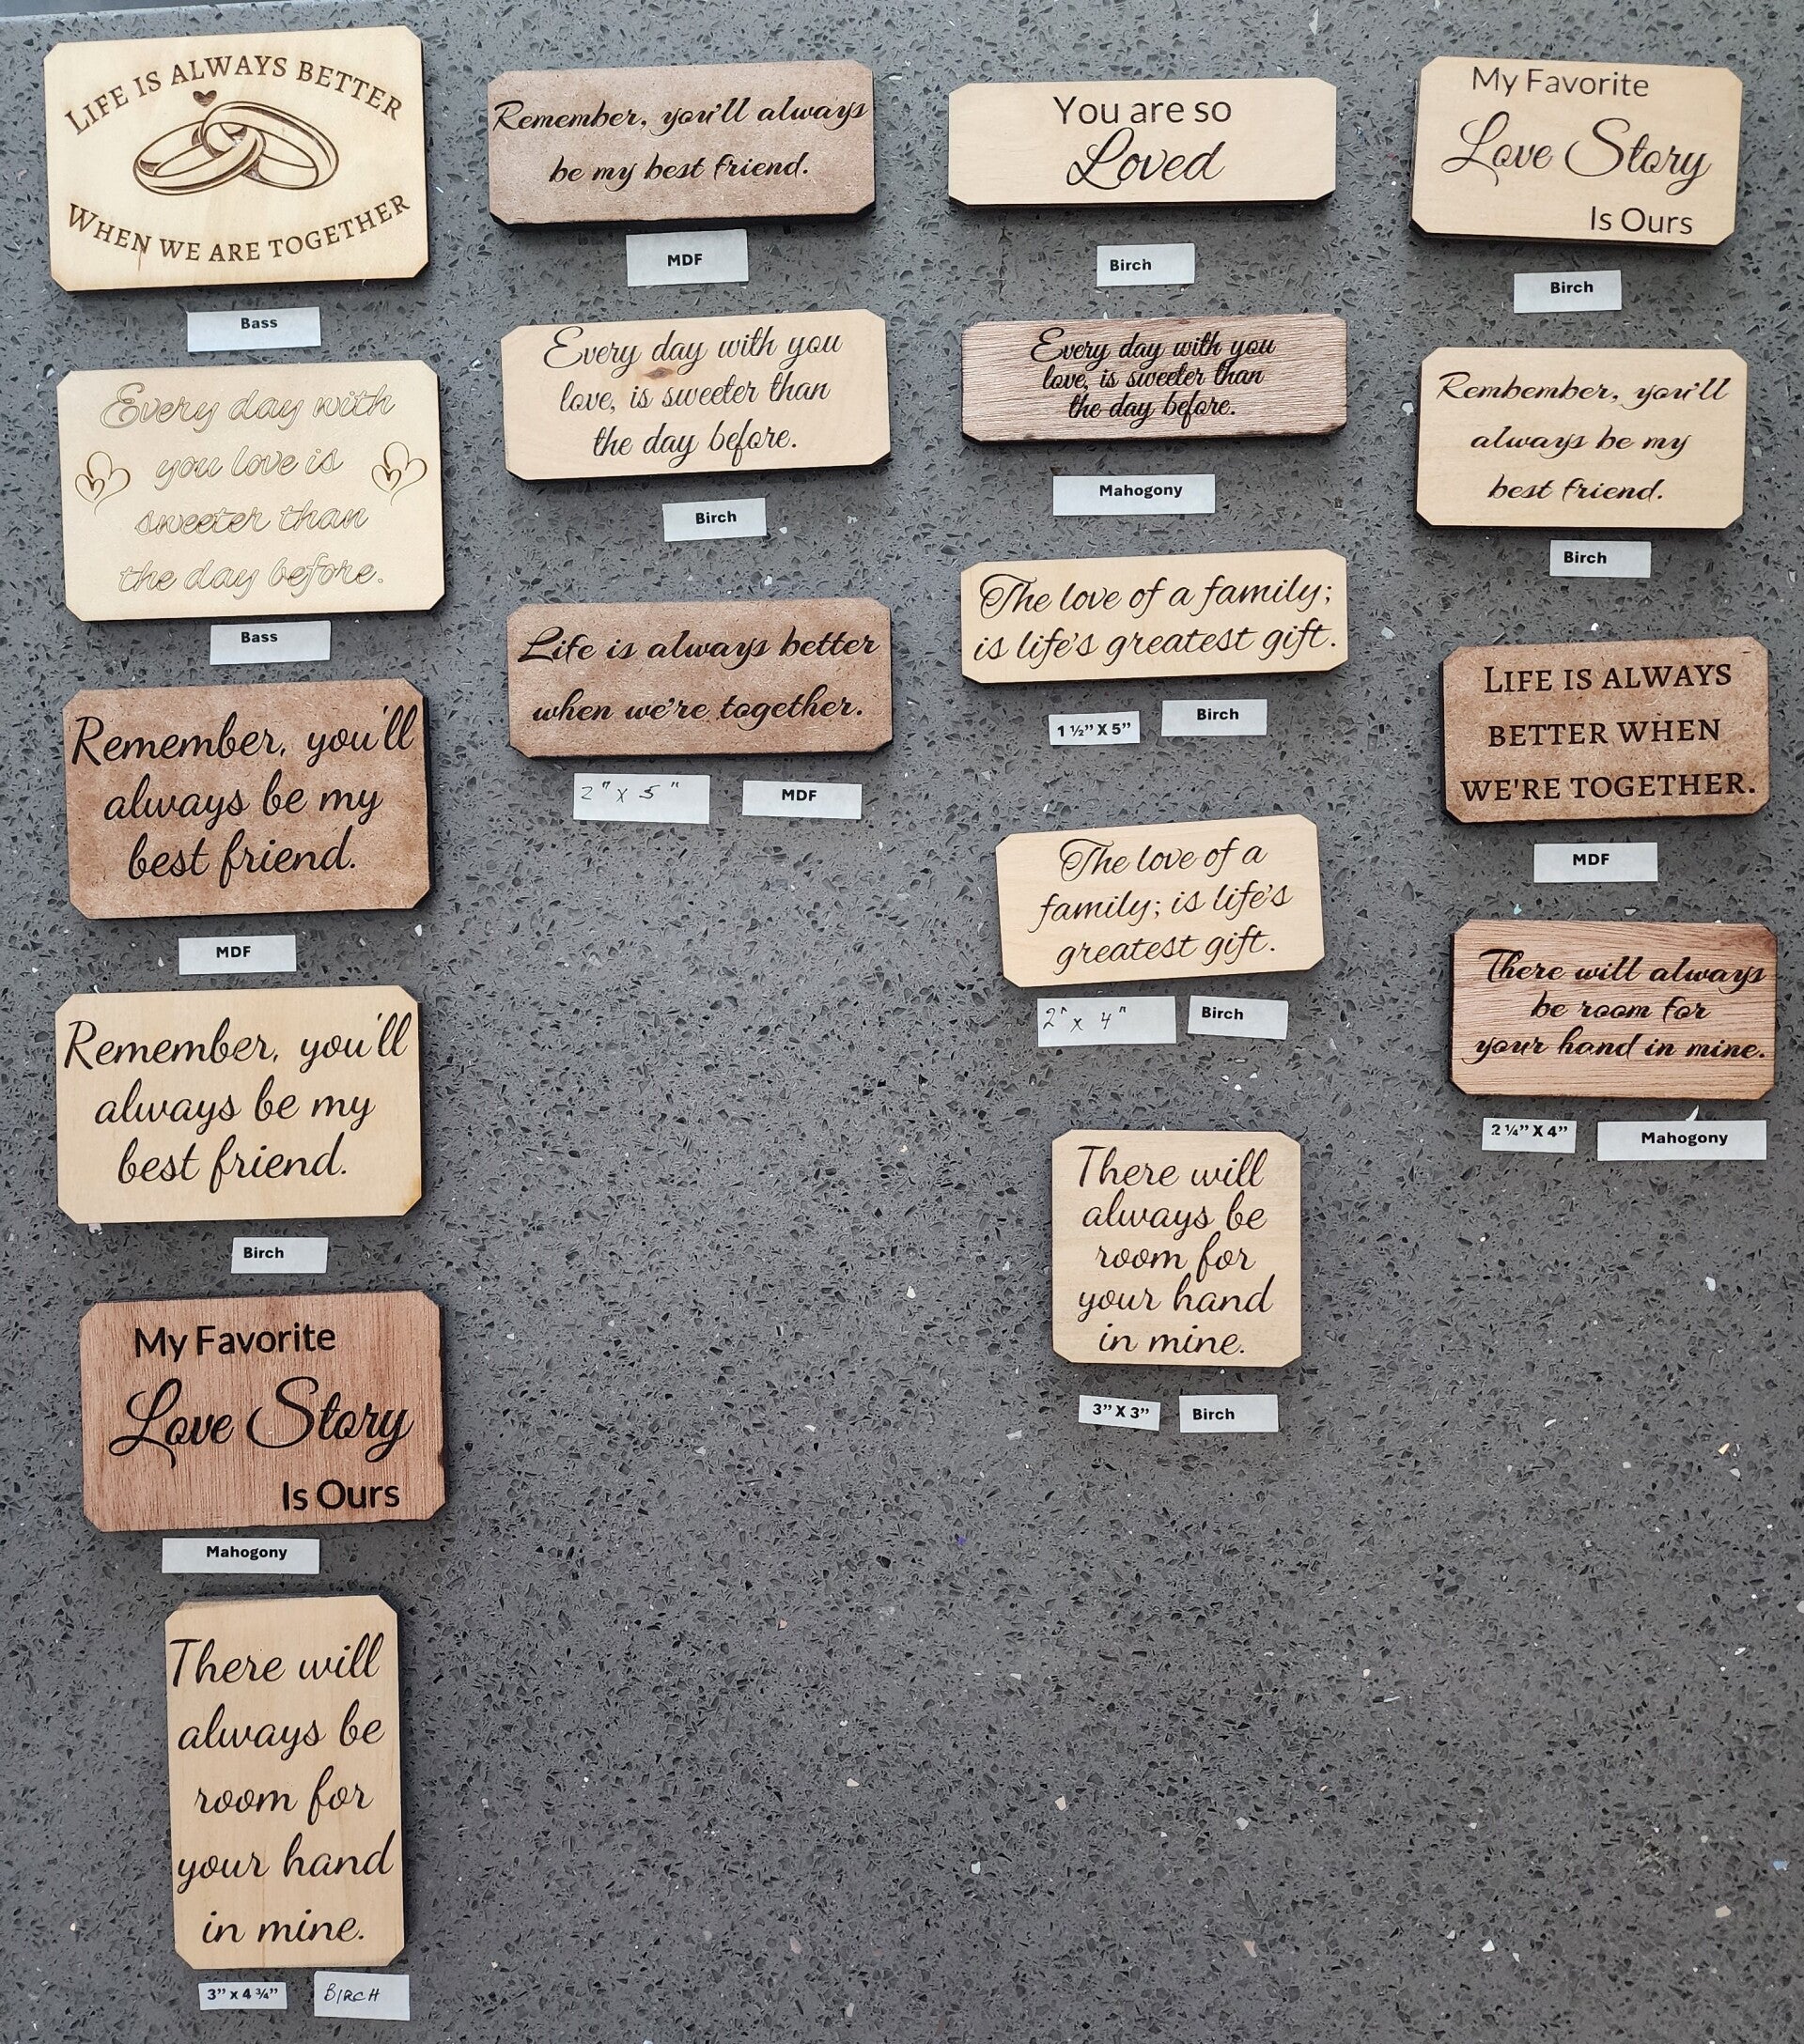 LIFE IS ALWAYS BETTER
WHEN WE ARE TOGETHER
Bass
Every day with
you love is
sweeter than
the day before.
Bass
Remember, you'll
always be my
best friend.
MDF
Remember, you'll
always be my
best friend.
Birch
My Favorite
Love Story
Is Ours
Mahogony
There will
always be
room for
your hand
in mine.
3” x 4 ¾”
BIRCH
Remember, you'll always
be my best friend.
MDF
Every day with you
love, is sweeter than
the day before.
Birch
Life is always better
when we're together.
2" x 5"
MDF
You are so
Loved
Birch
Every day with you
love, is sweeter than
the day before.
Mahogony
The love of a family;
is life's greatest gift.
1 ½” X 5”
Birch
The love of a
family; is life's
greatest gift.
2" x 4"
Birch
There will
always be
room for
your hand
in mine.
3” X 3”
Birch
My Favorite
Love Story
Is Ours
Birch
Rembember, you'll
always be my
best friend.
Birch
LIFE IS ALWAYS
BETTER WHEN
WE'RE TOGETHER.
MDF
There will always
be room for
your hand in mine.
2 ¼” X 4”
Mahogony